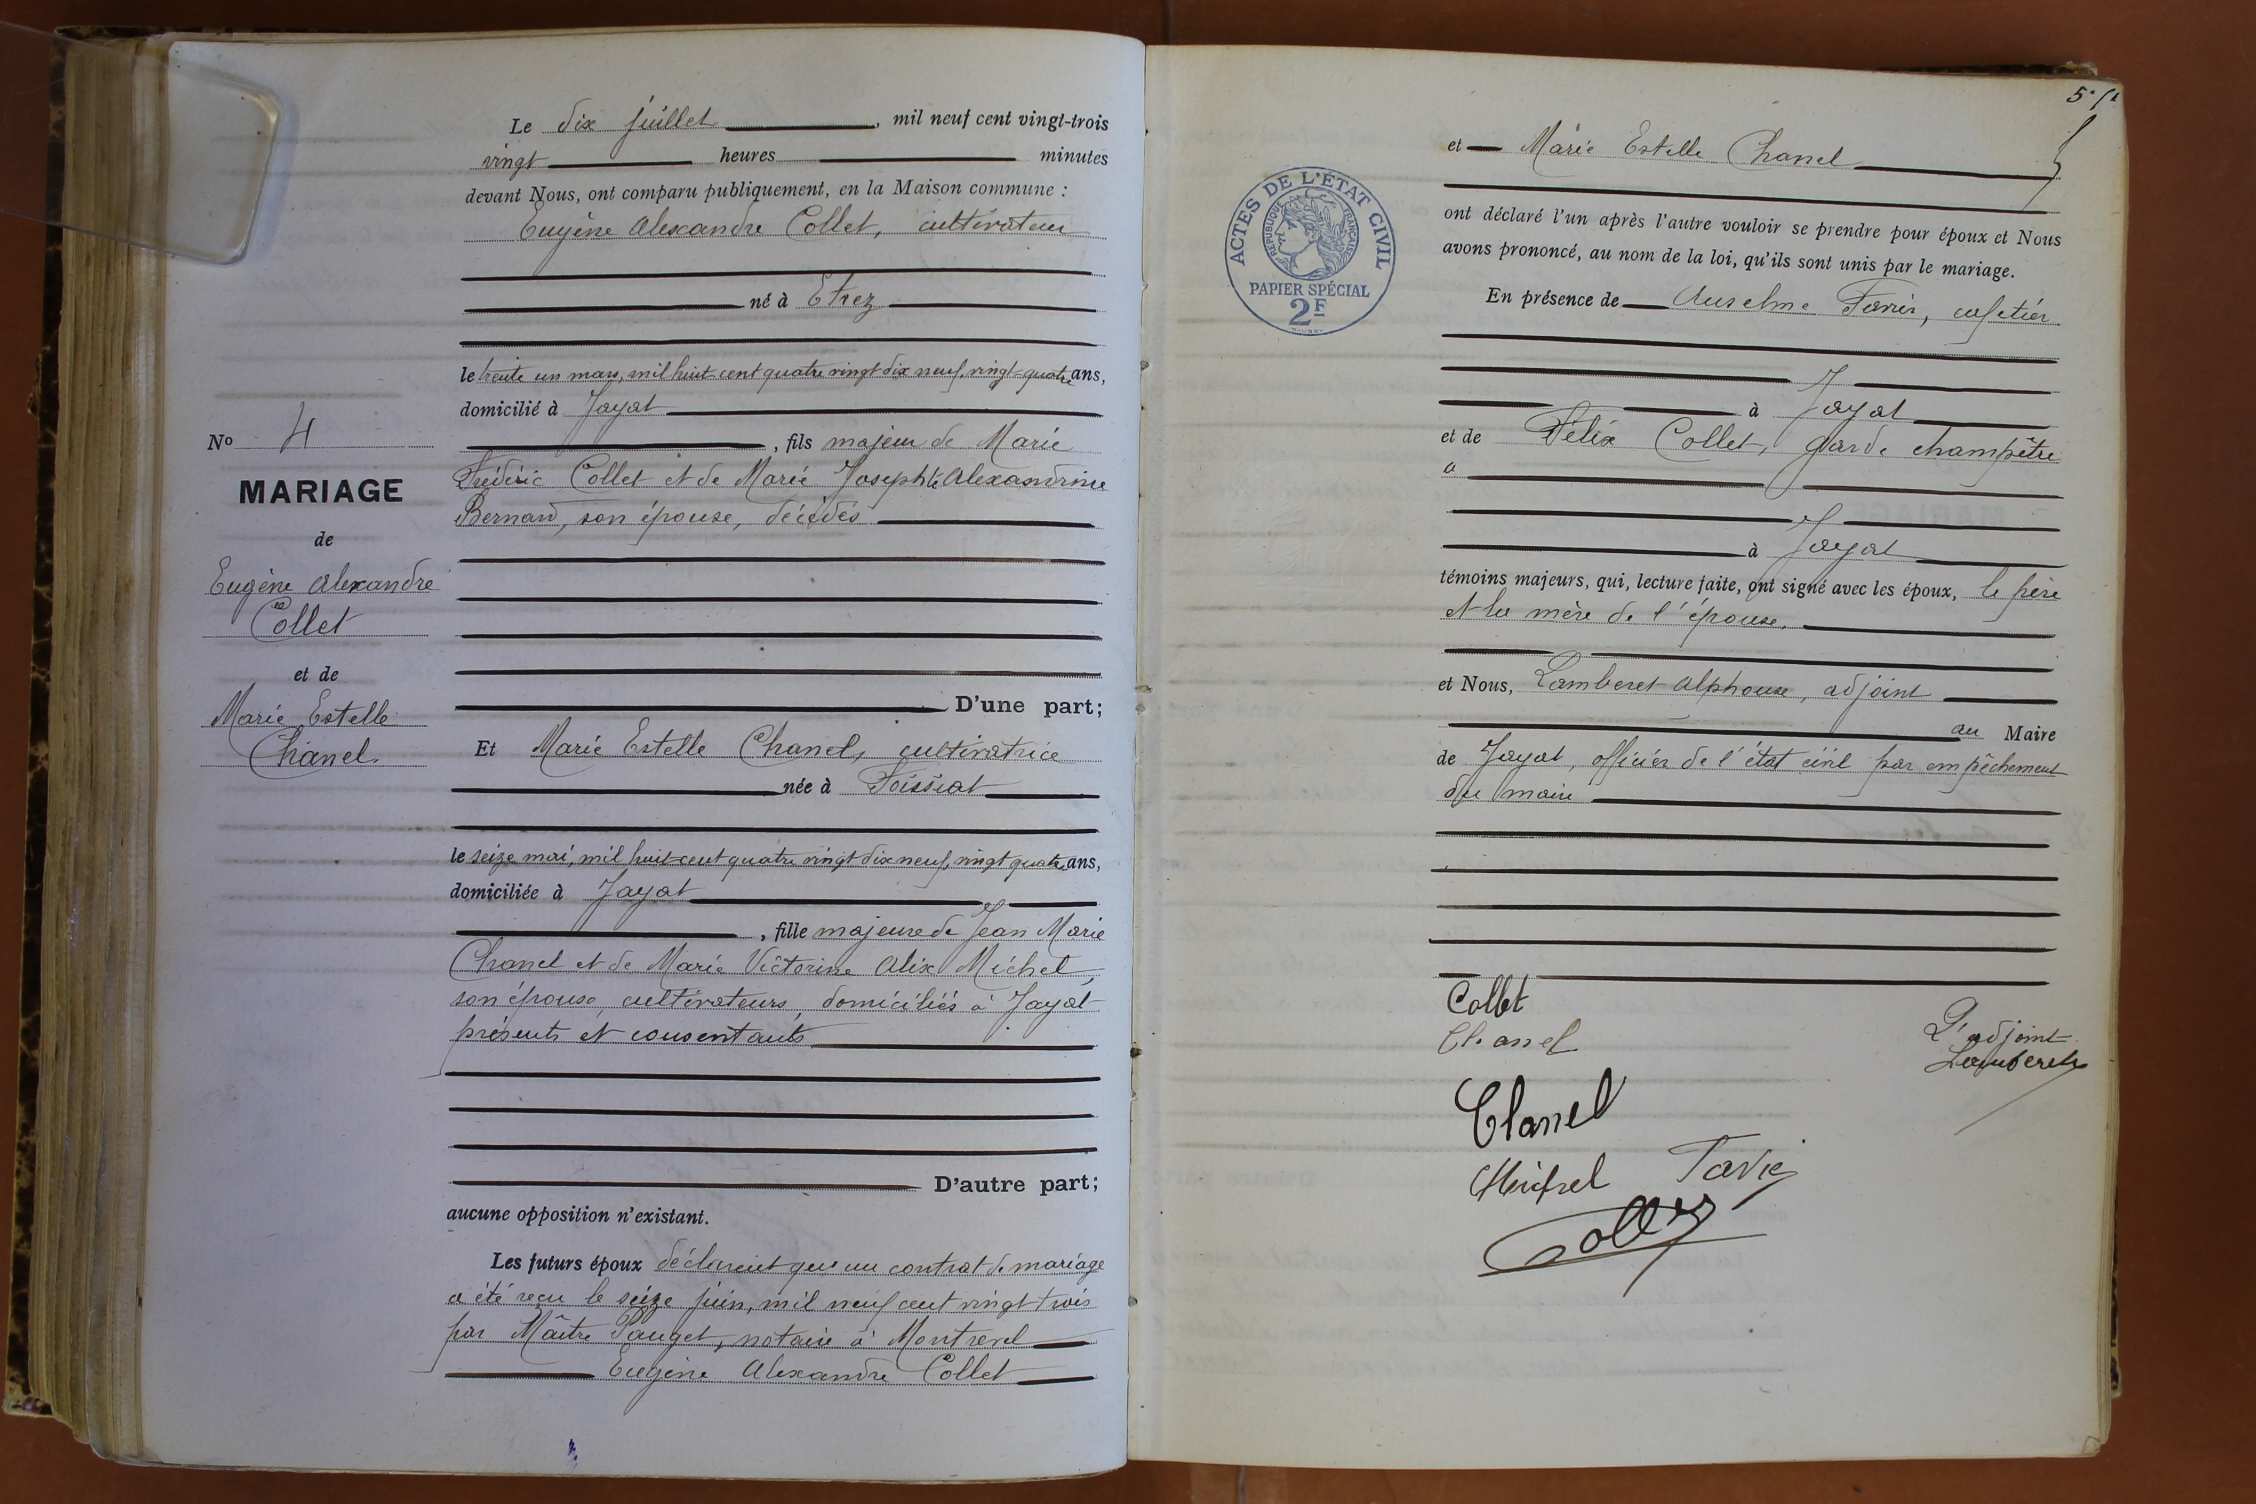 Le dix juillet, mil neuf cent vingt-trois
vingt heures minutes
devant Nous, ont comparu publiquement, en la Maison commune :
Eugène Alexandre Collet, cultivateur
né à Etrez
le trente un mars, mil huit cent quatre vingt dix neuf, vingt-quatre ans,
domicilié à Jayat
, fils majeur de Marie
Frédéric Collet et de Marie Josephte Alexandrine
Bernard, son épouse, décédés
No 4
MARIAGE
de
Eugène Alexandre
Collet
et de
Marie Estelle
Chanel
D'une part;
Et Marie Estelle Chanel, cultivatrice
née à Foissiat
le seize mai, mil huit cent quatre vingt dix neuf, vingt quatre ans,
domiciliée à Jayat
, fille majeure de Jean Marie
Chanel et de Marie Victorine Alix Michel,
son épouse, cultivateurs, domiciliés à Jayat
présents et consentants
D'autre part;
aucune opposition n'existant.
Les futurs époux déclarent qu'un contrat de mariage
a été reçu le seize juin, mil neuf cent vingt trois
par Maître Pauget, notaire à Montrevel
Eugène Alexandre Collet
et Marie Estelle Chanel
ont déclaré l'un après l'autre vouloir se prendre pour époux et Nous
avons prononcé, au nom de la loi, qu'ils sont unis par le mariage.
ACTES DE L'ÉTAT CIVIL
RÉPUBLIQUE FRANÇAISE
PAPIER SPÉCIAL
2F
En présence de Anselme, cafetier
à Jayat
et de Félix Collet, garde champêtre
à
à Jayat
témoins majeurs, qui, lecture faite, ont signé avec les époux, le père
et la mère de l'épouse.
et Nous, Lamberet Alphonse, adjoint
au Maire
de Jayat, officier de l'état civil par empêchement
du maire
Collet
Chanel
L'adjoint
Lamberet
Chanel
Michel
Collet